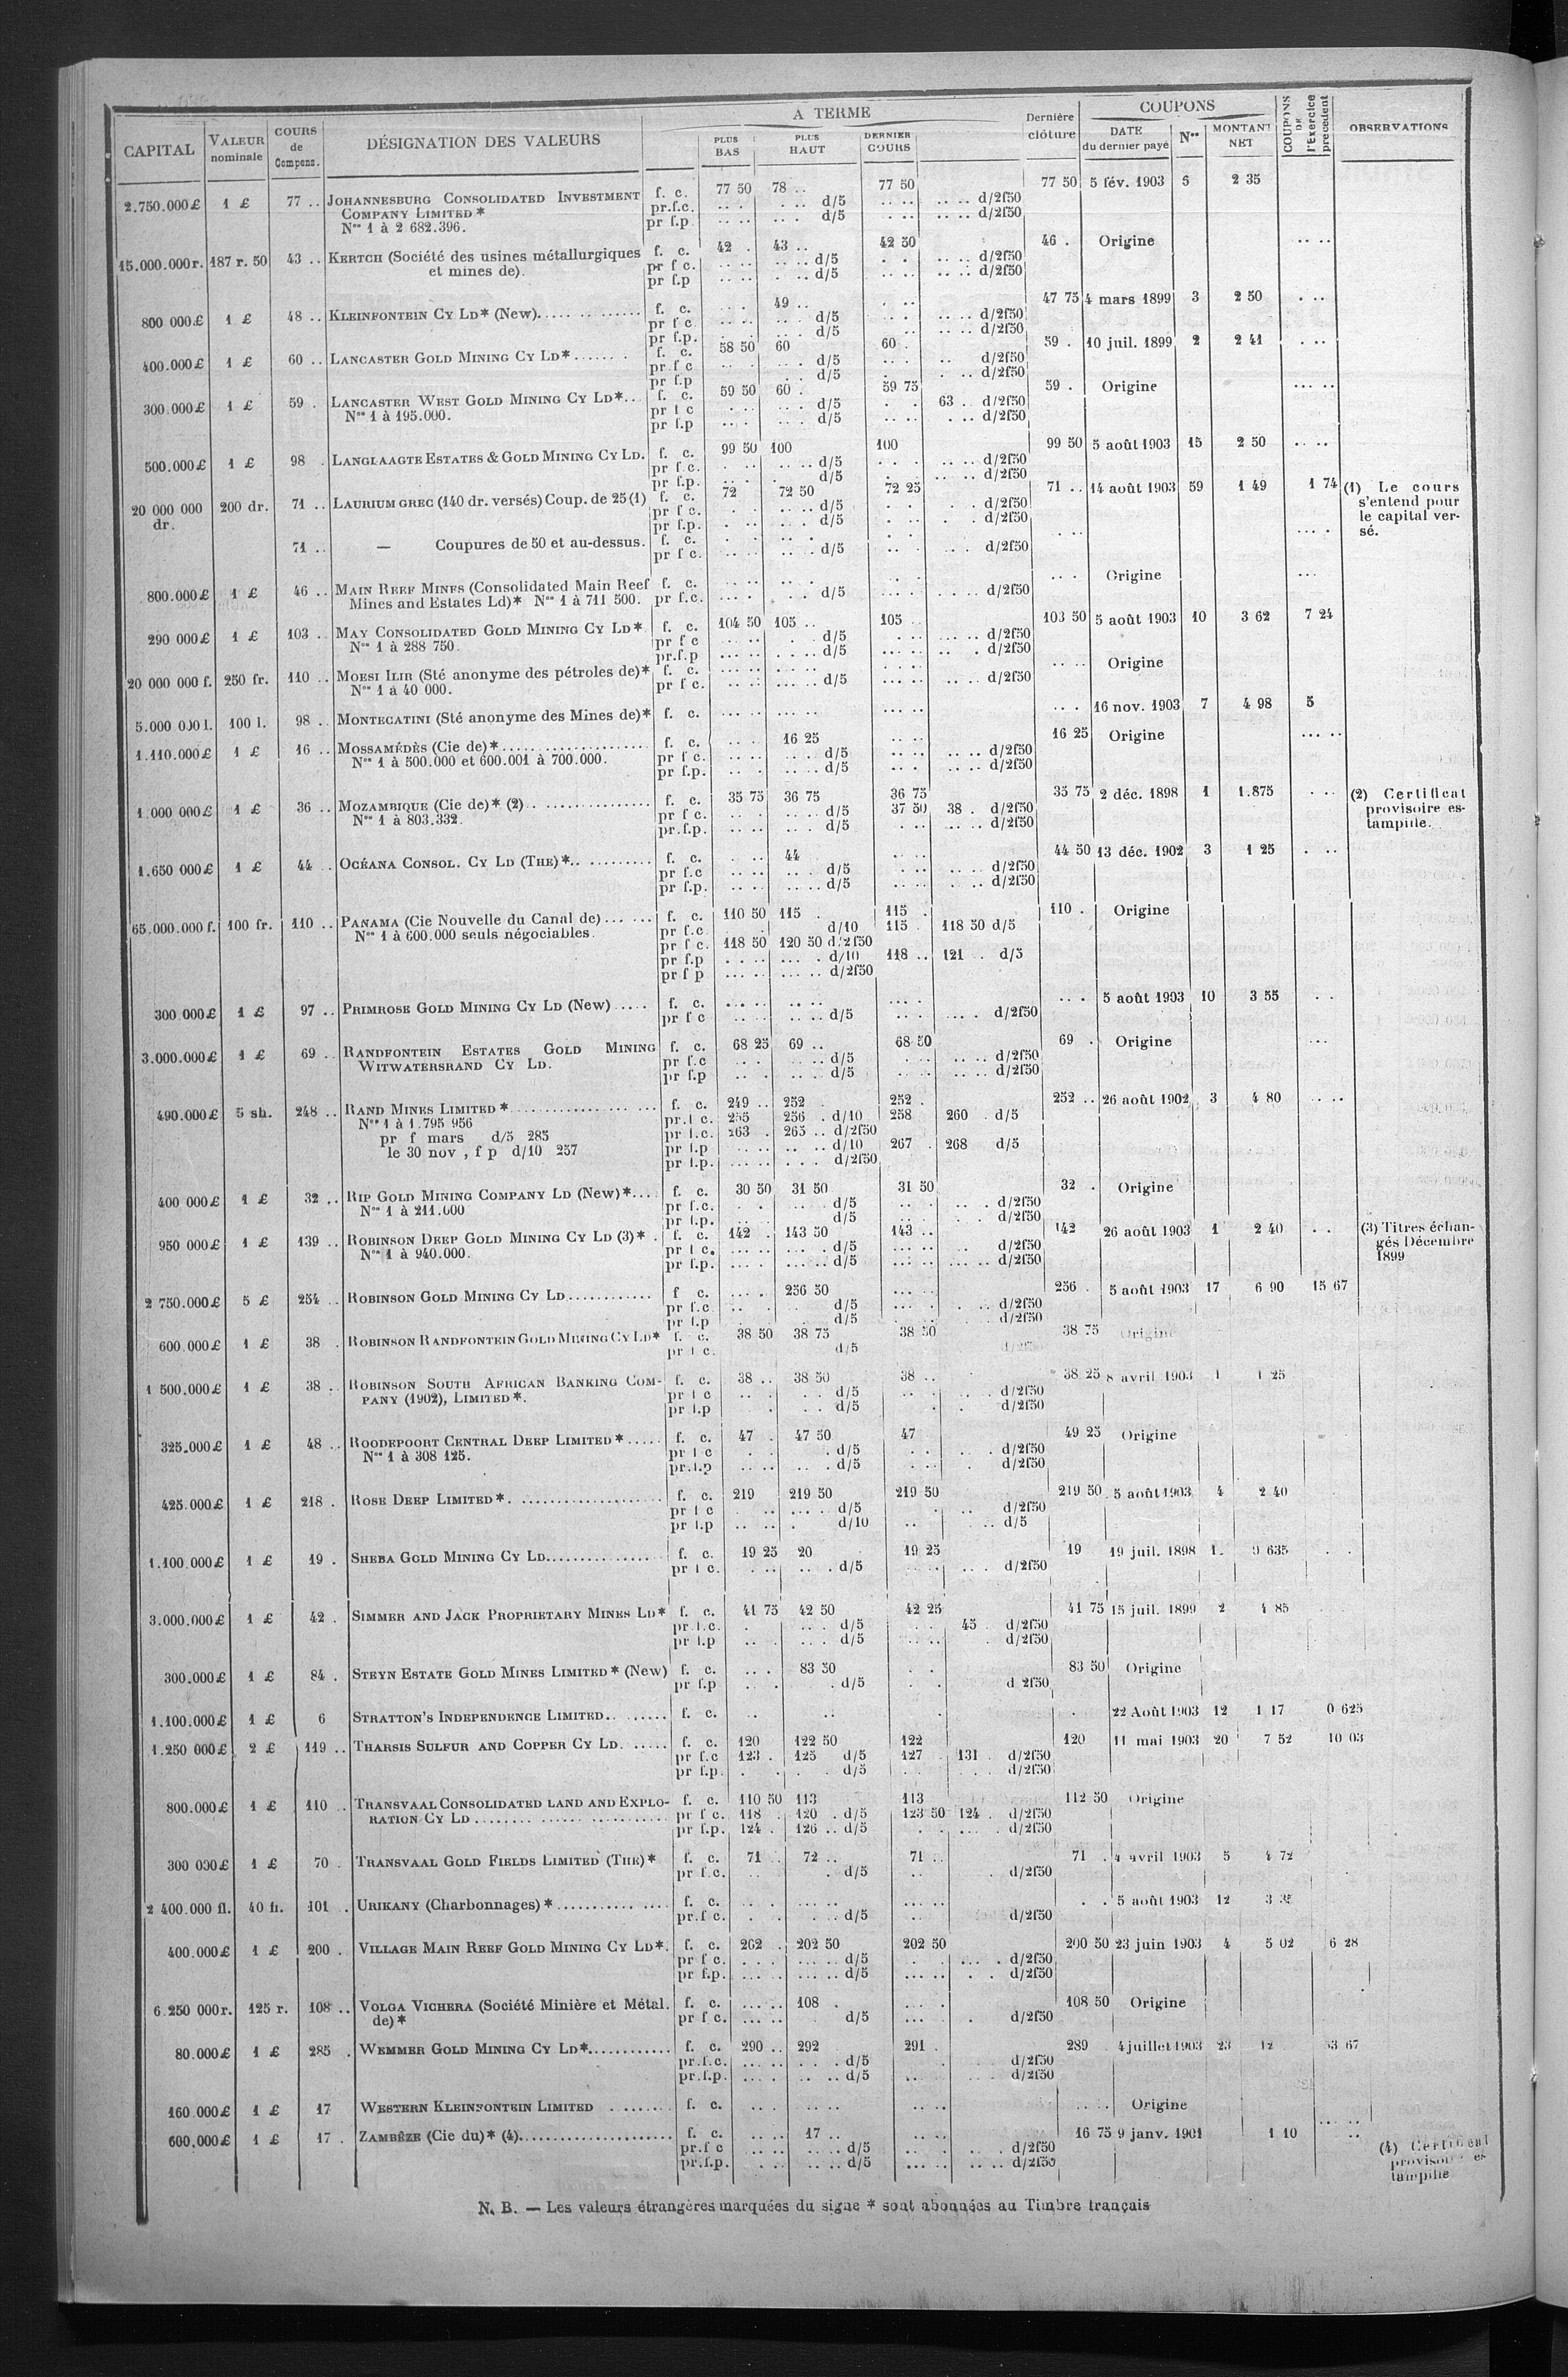 A TERME
COUPONS
CAPITAL | VALEUR nominale | COURS de Compens. | DÉSIGNATION DES VALEURS | PLUS BAS | PLUS HAUT | DERNIER COURS | Dernière clôture | DATE du dernier payé | Nos | MONTANT NET | COUPONS DE l'Exercice précédent | OBSERVATIONS
2.750.000 £ 1 £ 77 .. JOHANNESBURG CONSOLIDATED INVESTMENT f. c. 77 50 78 .. 77 50 77 50 5 fév. 1903 5 2 35
COMPANY LIMITED * pr.f.c. d/5 d/2f50
Nos 1 à 2 682.396. pr f.p d/5 d/2f50
15.000.000 r. 187 r. 50 43 .. KERTCH (Société des usines métallurgiques f. c. 42 . 43 .. 42 50 46 . Origine
et mines de). pr f c. d/5 d/2f50
pr f.p d/5 d/2f50
800 000 £ 1 £ 48 .. KLEINFONTEIN CY LD* (New) f. c. 49 .. 47 75 4 mars 1899 3 2 50
pr f c d/5 d/2f50
pr f.p. d/5 d/2f50
400.000 £ 1 £ 60 .. LANCASTER GOLD MINING CY LD* f. c. 58 50 60 60 . 59 . 10 juil. 1899 2 2 41
pr.f c d/5 d/2f50
pr f.p d/5 d/2f50
300.000 £ 1 £ 59 . LANCASTER WEST GOLD MINING CY LD* f. c. 59 50 60 . 59 75 59 . Origine
Nos 1 à 195.000. pr f c d/5 63 .. d/2f50
pr f.p d/5 d/2f50
500.000 £ 1 £ 98 . LANGLAAGTE ESTATES & GOLD MINING CY LD. f. c. 99 50 100 100 99 50 5 août 1903 15 2 50
pr f c. d/5 d/2f50
pr f.p. d/5 d/2f50
20 000 000 dr. 200 dr. 71 .. LAURIUM GREC (140 dr. versés) Coup. de 25 (1) f. c. 72 72 50 72 25 71 .. 14 août 1903 59 1 49 1 74 (1) Le cours s'entend pour le capital versé.
pr f c. d/5 d/2f50
pr f.p. d/5 d/2f50
71 .. — Coupures de 50 et au-dessus. f. c.
pr f c. d/5 d/2f50
800.000 £ 1 £ 46 .. MAIN REEF MINES (Consolidated Main Reef f. c. Origine
Mines and Estates Ld)* Nos 1 à 711 500. pr f.c. d/5 d/2f50
290 000 £ 1 £ 103 .. MAY CONSOLIDATED GOLD MINING CY LD* f. c. 104 50 105 .. 105 103 50 5 août 1903 10 3 62 7 24
Nos 1 à 288 750. pr f c d/5 d/2f50
pr.f.p d/5 d/2f50
20 000 000 f. 250 fr. 110 .. MOESI ILIR (Sté anonyme des pétroles de)* f. c. Origine
Nos 1 à 40 000. pr f c. d/5 d/2f50
5.000 000 l. 100 l. 98 .. MONTECATINI (Sté anonyme des Mines de)* f. c. 16 nov. 1903 7 4 98 5
1.110.000 £ 1 £ 16 .. MOSSAMÉDÈS (Cie de)* f. c. 16 25 16 25 Origine
Nos 1 à 500.000 et 600.001 à 700.000. pr f c. d/5 d/2f50
pr f.p. d/5 d/2f50
1.000 000 £ 1 £ 36 .. MOZAMBIQUE (Cie de)* (2) f. c. 35 75 36 75 36 75 35 75 2 déc. 1898 1 1.875 (2) Certificat provisoire estampillé.
Nos 1 à 803.332. pr f c. d/5 37 50 38 . d/2f50
pr.f.p. d/5 d/2f50
1.650 000 £ 1 £ 44 .. OCÉANA CONSOL. CY LD (THE)* f. c. 44 44 50 13 déc. 1902 3 1 25
pr f.c d/5 d/2f50
pr f.p. d/5 d/2f50
65.000.000 f. 100 fr. 110 .. PANAMA (Cie Nouvelle du Canal de) f. c. 110 50 115 115 . 110 . Origine
Nos 1 à 600.000 seuls négociables. pr f.c d/10 115 118 50 d/5
pr f c. 118 50 120 50 d/2f50
pr f.p d/10 118 .. 121 . d/5
pr f p d/2f50
300 000 £ 1 £ 97 .. PRIMROSE GOLD MINING CY LD (New) f. c. 5 août 1903 10 3 55
pr f c d/5 d/2f50
3.000.000 £ 1 £ 69 .. RANDFONTEIN ESTATES GOLD MINING f. c. 68 25 69 .. 68 50 69 . Origine
WITWATERSRAND CY LD. pr f.c d/5 d/2f50
pr f.p d/5 d/2f50
490.000 £ 5 sh. 248 .. RAND MINES LIMITED * f. c. 249 .. 252 252 . 252 .. 26 août 1902 3 4 80
Nos 1 à 1.795 956 pr.f c. 255 256 . d/10 258 260 . d/5
pr f mars d/5 285 pr f.c. 263 . 265 .. d/2f50
le 30 nov , f p d/10 257 pr f.p d/10 267 . 268 d/5
pr f.p. d/2f50
400 000 £ 1 £ 32 .. RIP GOLD MINING COMPANY LD (New)* f. c. 30 50 31 50 31 50 32 . Origine
Nos 1 à 211.000 pr f.c. d/5 d/2f50
pr f.p. d/5 d/2f50
950 000 £ 1 £ 139 .. ROBINSON DEEP GOLD MINING CY LD (3)* f. c. 142 . 143 50 143 .. 142 26 août 1903 1 2 40 (3) Titres échangés Décembre 1899
Nos 1 à 940.000. pr f c. d/5 d/2f50
pr f.p. d/5 d/2f50
2 750.000 £ 5 £ 254 .. ROBINSON GOLD MINING CY LD f c. 256 50 256 . 5 août 1903 17 6 90 15 67
pr f.c d/5 d/2f50
pr f.p d/5 d/2f50
600.000 £ 1 £ 38 . ROBINSON RANDFONTEIN GOLD MINING CY LD* f. c. 38 50 38 75 38 50 38 75 Origine
pr f c. d/5 d/2f50
1 500.000 £ 1 £ 38 .. ROBINSON SOUTH AFRICAN BANKING COM- f. c. 38 .. 38 50 38 .. 38 25 8 avril 1903 1 1 25
PANY (1902), LIMITED *. pr f c d/5 d/2f50
pr f.p d/5 d/2f50
325.000 £ 1 £ 48 .. ROODEPOORT CENTRAL DEEP LIMITED * f. c. 47 . 47 50 47 49 25 Origine
Nos 1 à 308 125. pr f c d/5 d/2f50
pr.f.p d/5 d/2f50
425.000 £ 1 £ 218 . ROSE DEEP LIMITED * f. c. 219 219 50 219 50 219 50 5 août 1903 4 2 40
pr f c d/5 d/2f50
pr f.p d/10 d/5
1.100.000 £ 1 £ 19 . SHEBA GOLD MINING CY LD f. c. 19 25 20 19 25 19 19 juil. 1898 1. 0 635
pr f c. d/5 d/2f50
3.000.000 £ 1 £ 42 . SIMMER AND JACK PROPRIETARY MINES LD* f. c. 41 75 42 50 42 25 41 75 15 juil. 1899 2 4 85
pr f.c. d/5 45 d/2f50
pr f.p d/5 d/2f50
300.000 £ 1 £ 84 . STEYN ESTATE GOLD MINES LIMITED * (New) f. c. 83 50 83 50 Origine
pr f.p d/5 d 2f50
1.100.000 £ 1 £ 6 STRATTON'S INDEPENDENCE LIMITED f. c. 22 Août 1903 12 1 17 0 625
1.250 000 £ 2 £ 119 .. THARSIS SULFUR AND COPPER CY LD. f. c. 120 122 50 122 120 11 mai 1903 20 7 52 10 03
pr f.c 123 . 125 d/5 127 131 . d/2f50
pr f.p. d/5 d/2f50
800.000 £ 1 £ 110 .. TRANSVAAL CONSOLIDATED LAND AND EXPLO- f. c. 110 50 113 113 112 50 Origine
RATION CY LD pr f c. 118 . 120 . d/5 123 50 124 . d/2f50
pr f.p. 124 . 126 .. d/5 d/2f50
300 000 £ 1 £ 70 . TRANSVAAL GOLD FIELDS LIMITED (THE)* f. c. 71 . 72 .. 71 .. 71 . 4 avril 1903 5 4 72
pr f.c. d/5 d/2f50
2 400.000 fl. 40 fl. 101 . URIKANY (Charbonnages) * f. c. 5 août 1903 12
pr.f c. d/5 d/2f50
400.000 £ 1 £ 200 . VILLAGE MAIN REEF GOLD MINING CY LD*. f. c. 202 . 202 50 202 50 200 50 23 juin 1903 4 5 02 6 28
pr f c. d/5 d/2f50
pr f.p. d/5 d/2f50
6.250 000 r. 125 r. 108 .. VOLGA VICHERA (Société Minière et Métal. f. c. 108 . 108 50 Origine
de)* pr f c. d/5 d/2f50
80.000 £ 1 £ 285 . WEMMER GOLD MINING CY LD* f. c. 290 .. 292 291 . 289 . 4 juillet 1903 23 12 53 67
pr.f.c. d/5 d/2f50
pr.f.p. d/5 d/2f50
160 000 £ 1 £ 17 WESTERN KLEINFONTEIN LIMITED f. c. Origine
600,000 £ 1 £ 17 . ZAMBÈZE (Cie du)* (4) f. c. 17 .. 16 75 9 janv. 1901 1 10 (4) Certificat provisoire estampillé
pr.f c d/5 d/2f50
pr.f.p. d/5 d/2f50
N. B. — Les valeurs étrangères marquées du signe * sont abonnées au Timbre français